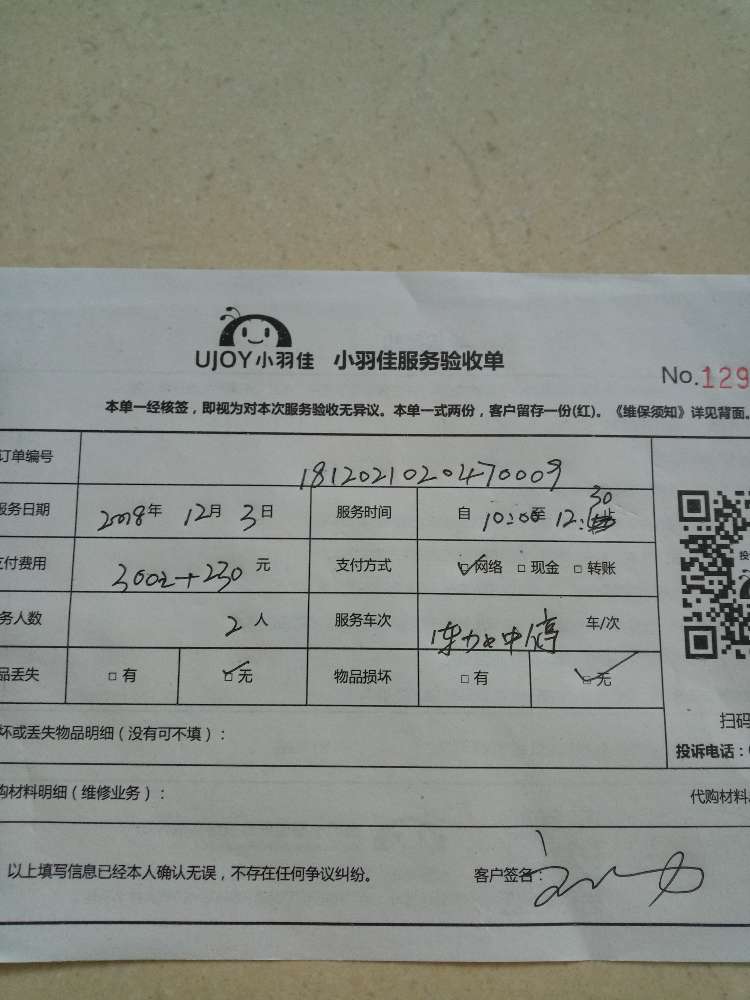 UJOY小羽佳 小羽佳服务验收单
No.129
本单一经核签，即视为对本次服务验收无异议。本单一式两份，客户留存一份(红)。《维保须知》详见背面。
订单编号 18120210204470009
服务日期 2018年 12月 3日 服务时间 自 10:00至 12:30
支付费用 300z+230 元 支付方式 □网络 □现金 □转账
务人数 2 人 服务车次 车/次
品丢失 □有 □无 物品损坏 □有 □无
坏或丢失物品明细（没有可不填）：
扫码
投诉电话：
购材料明细（维修业务）： 代购材料
以上填写信息已经本人确认无误，不存在任何争议纠纷。 客户签名：